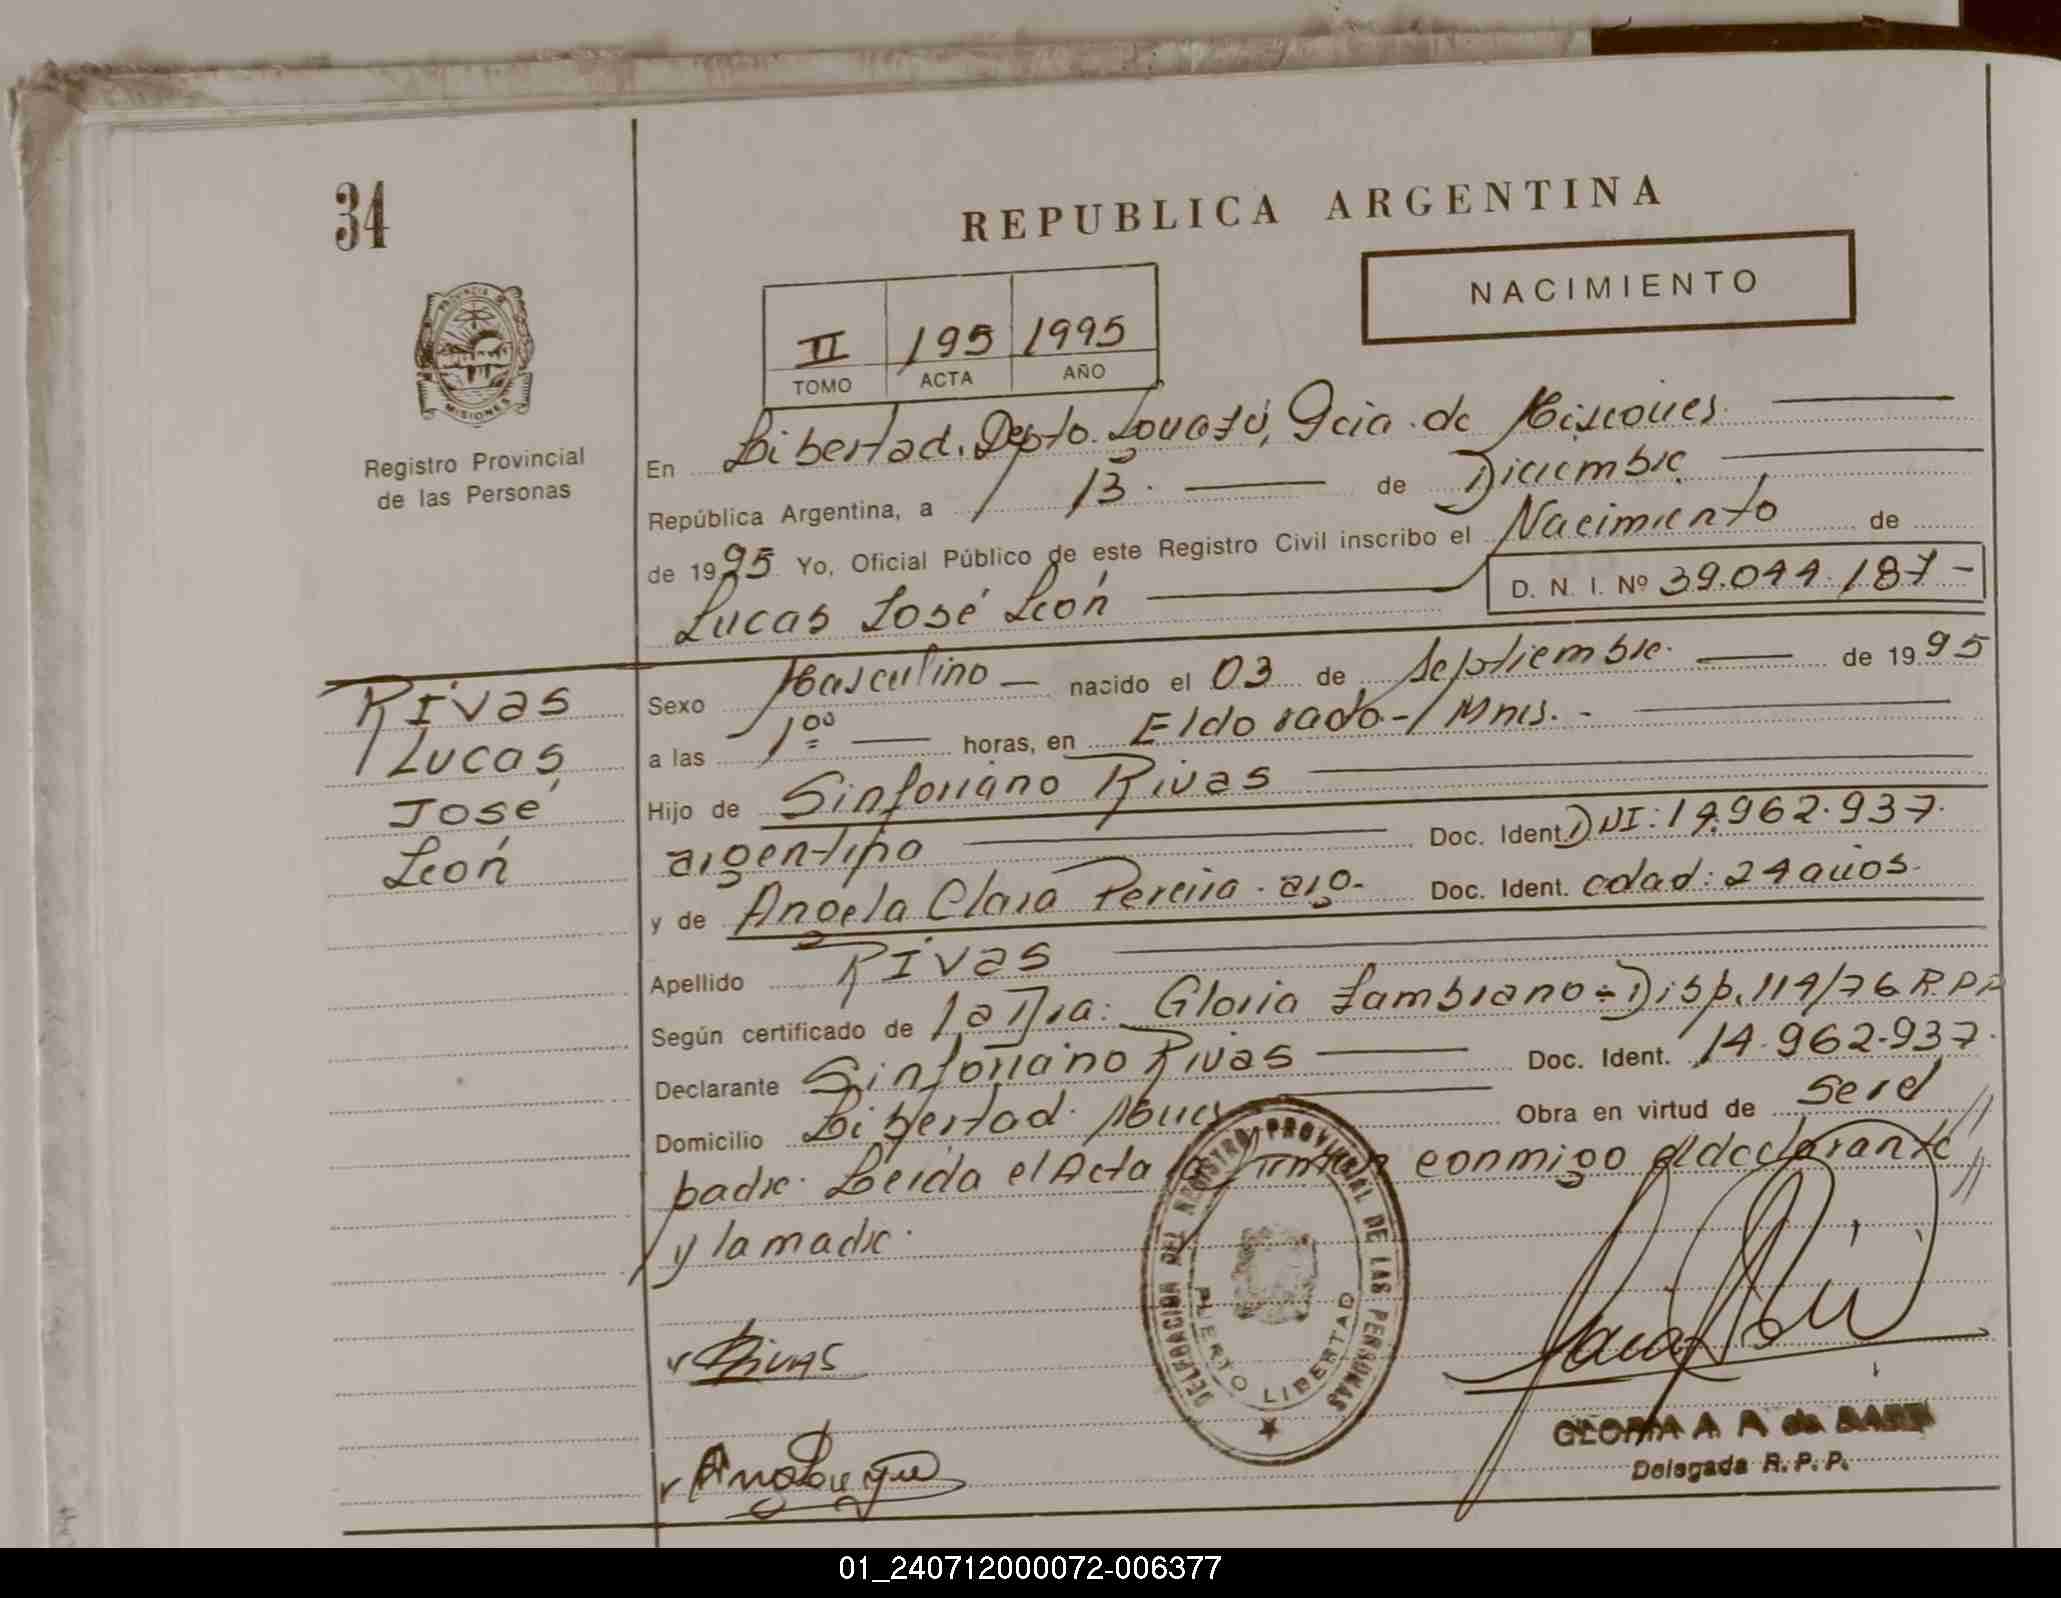 34
REPUBLICA ARGENTINA
NACIMIENTO
II 195 1995
TOMO ACTA AÑO
PROVINCIA DE
MISIONES
Registro Provincial
de las Personas
En Libertad, Depto. Iguazú, Pcia. de Misiones.
República Argentina, a 13. de Diciembre
de 1995 Yo, Oficial Público de este Registro Civil inscribo el Nacimiento de
D. N. I. Nº 39.044.187-
Lucas José León
Rivas
Lucas
José
León
Sexo Masculino nacido el 03 de Septiembre. de 1995
a las 1ºº horas, en Eldorado-Mnes.-
Hijo de Sinforiano Rivas
argentino Doc. Ident. DNI: 14.962.937.
y de Angela Clara Pereira. arg. Doc. Ident. edad: 24 años.
Apellido Rivas
Según certificado de la Dra: Gloria Zambrano - Disp. 114/76 R.P.P.
Declarante Sinforiano Rivas Doc. Ident. 14.962.937.
Domicilio Libertad. Mnes Obra en virtud de ser el //
padre. Leida el Acta la firman conmigo el declarante //
y la madre.
DELEGACION DEL REGISTRO PROVINCIAL DE LAS PERSONAS
PUERTO LIBERTAD
Rivas
GLORIA A de
Delegada R. P. P.
01_240712000072-006377